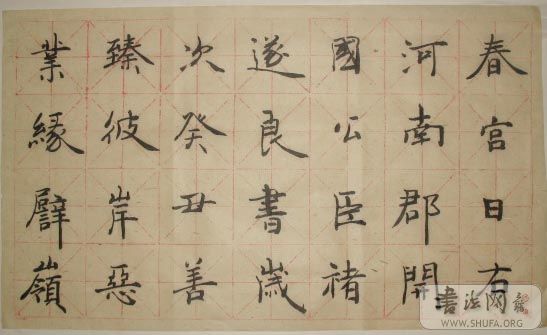 春宮日右
河南郡開
國公臣褚
遂良書歲
次癸丑善
臻彼岸惡
業緣嶺
書法网
WWW.SHUFA.ORG